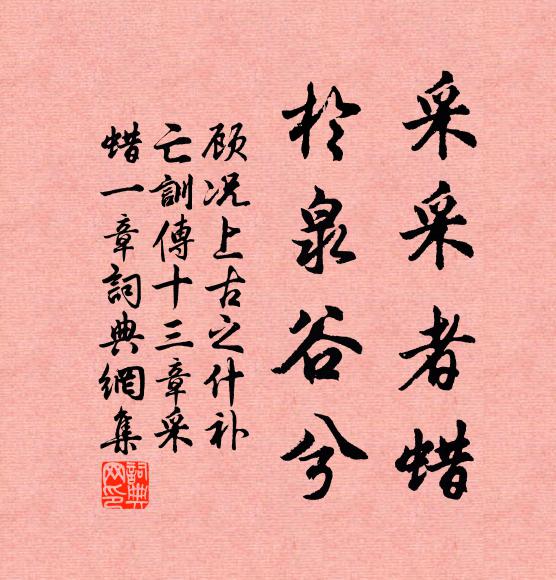 采采者蜡
於泉谷兮
顾况上古之什补
亡訓傳十三章采
蜡一章詞典網集
詞典网印